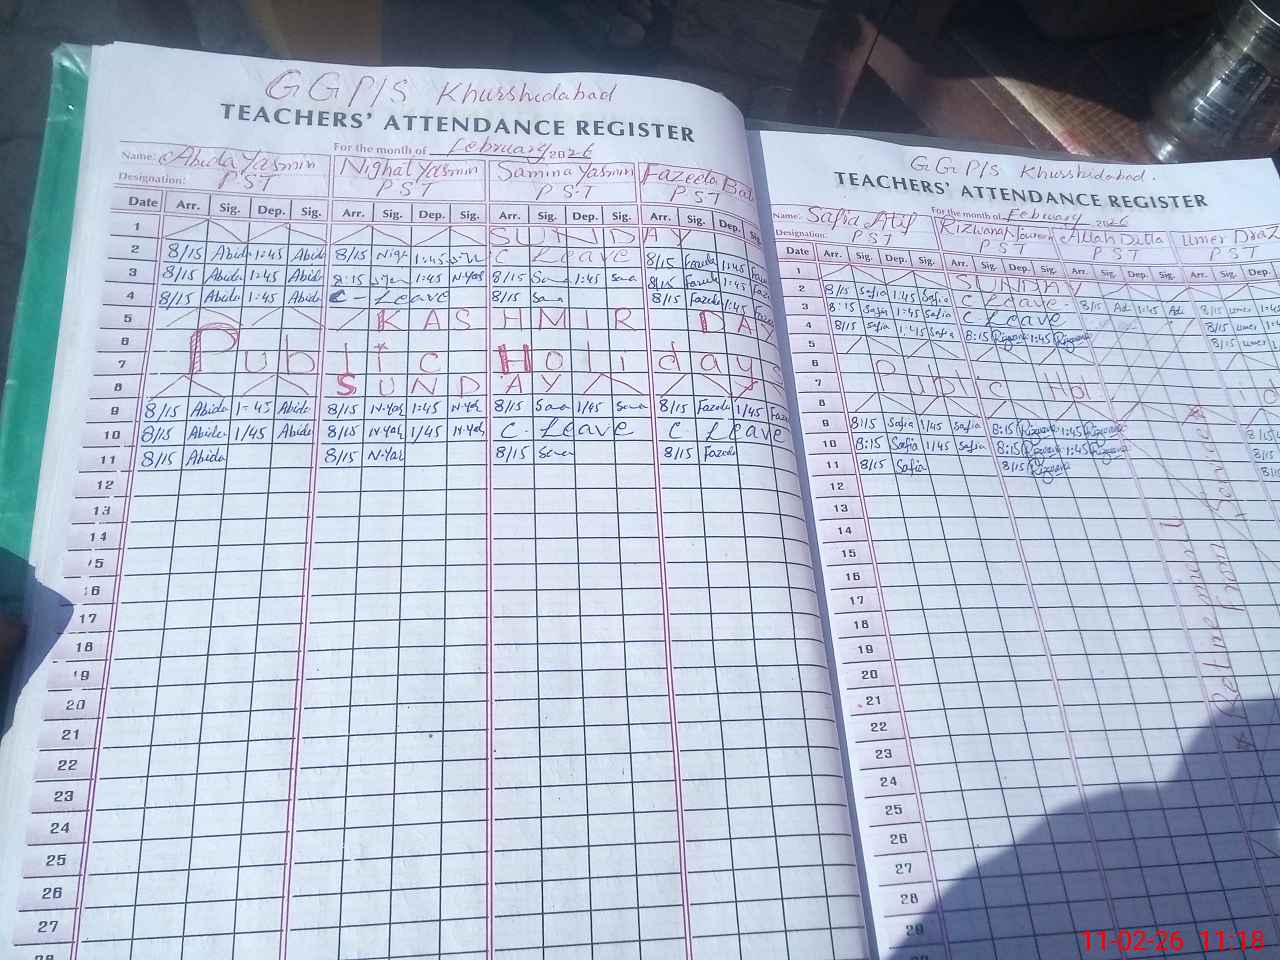 GGP/S Khurshidabad
TEACHERS' ATTENDANCE REGISTER
For the month of February 2026
Name: Abida Yasmin Nighat Yasmin Samina Yasmin Fazeela
Designation: PST PST PST PST
Date Arr. Sig. Dep. Sig. Arr. Sig. Dep. Sig. Arr. Sig. Dep. Sig. Arr. Sig. Dep. Sig.
1 SUNDAY
2 8/15 Abida 1:45 Abida 8/15 1:45 C Leave 8/15 Fazeela 1:45
3 8/15 Abida 1:45 Abida 8:15 1:45 N-Yas 8/15 Sana 1:45 Sana 8/15 Fazeela 1:45
4 8/15 Abida 1:45 Abida C-Leave 8/15 Sana 8/15 Fazeela 1:45
5 KASHMIR DAY
6
7 Public Holiday
8 SUNDAY
9 8/15 Abida 1=45 Abida 8/15 N-Yas 1:45 N-Yas 8/15 Sana 1/45 Sana 8/15 Fazeela 1/45
10 8/15 Abida 1/45 Abida 8/15 N-Yas 1/45 N-Yas C. Leave C. Leave
11 8/15 Abida 8/15 N-Yas 8/15 Sana 8/15 Fazeela
12
13
14
15
16
17
18
19
20
21
22
23
24
25
26
27
28
GGP/S Khurshidabad.
TEACHERS' ATTENDANCE REGISTER
For the month of February 2026
Name: Safia Atif Rizwana Noureen Allah Ditta Umer Draz
Designation: PST PST PST PST
Date Arr. Sig. Dep. Sig. Arr. Sig. Dep. Sig. Arr. Sig. Dep. Sig. Arr. Sig.
1 SUNDAY
2 8/15 Safia 1:45 Safia C Leave. 8/15 1:45 8/15 umer
3 8:15 Safia 1:45 Safia C Leave 8/15 umer
4 8/15 Safia 1:45 Safia 8:15 Rizwana 1:45 Rizwana 8/15 umer
5
6
7 Public Hol
8
9 8:15 Safia 1/45 Safia 8:15 Rizwana 1:45 Rizwana 8:15
10 8:15 Safia 1/45 Safia 8:15 Rizwana 1:45 Rizwana 8/15
11 8/15 Safia 8/15 Rizwana 8/15
12
13
14
15
16
17
18
19
20
21
22
23
24
25
26
27
28
29
Retirement from Service
11-02-26 11:18